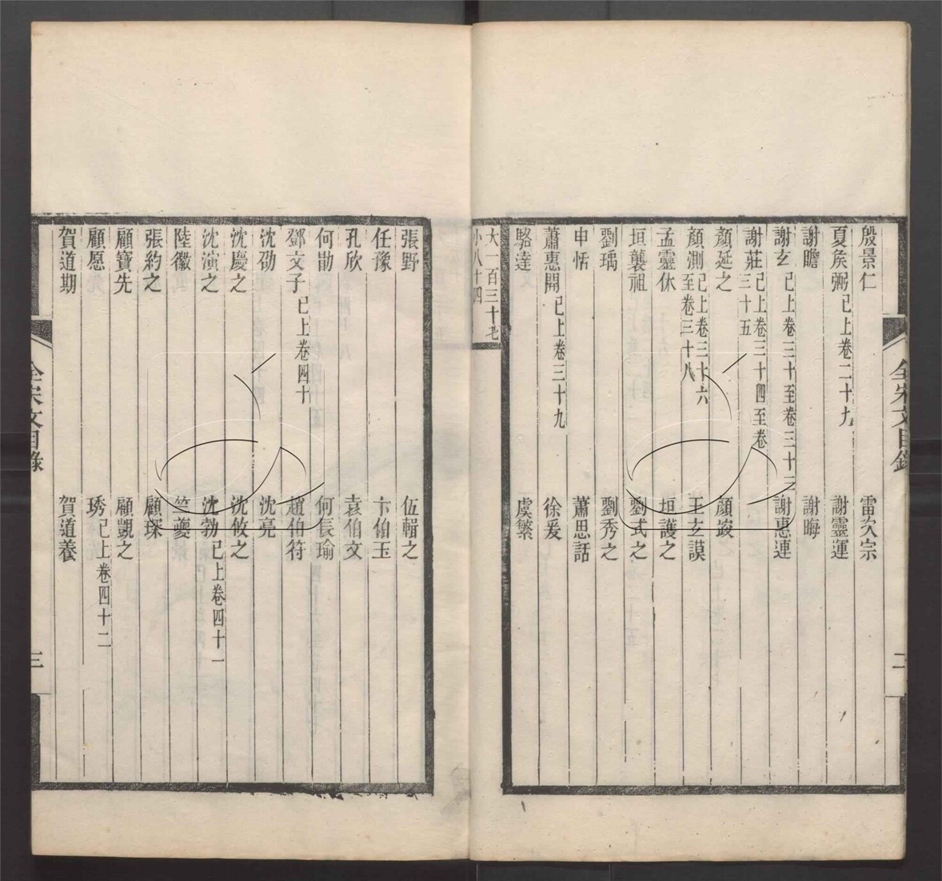 殷景仁 雷次宗
夏矦弼已上卷二十九 謝靈運
謝瞻 謝晦
謝玄已上卷三十至卷三十二 謝惠連
謝莊已上卷三十四至卷三十五
顏延之 顏竣
顏測已上卷三十六至卷三十八 王玄謨
孟靈休 垣護之
垣襲祖 劉式之
劉瑀 劉秀之
申恬 蕭思話
蕭惠開已上卷三十九 徐爰
駱達 虞繁
大一百三十七
小八十四
全宋文目錄
二
張野 伍輯之
任豫 卞伯玉
孔欣 袁伯文
何勗 何長瑜
鄧文子已上卷四十 趙伯符
沈劭 沈亮
沈慶之 沈攸之
沈演之 沈勃已上卷四十一
陸徽 竺夔
張約之 顧琛
顧寶先 顧覬之
顧愿 琇已上卷四十二
賀道期 賀道養
全宋文目錄
三